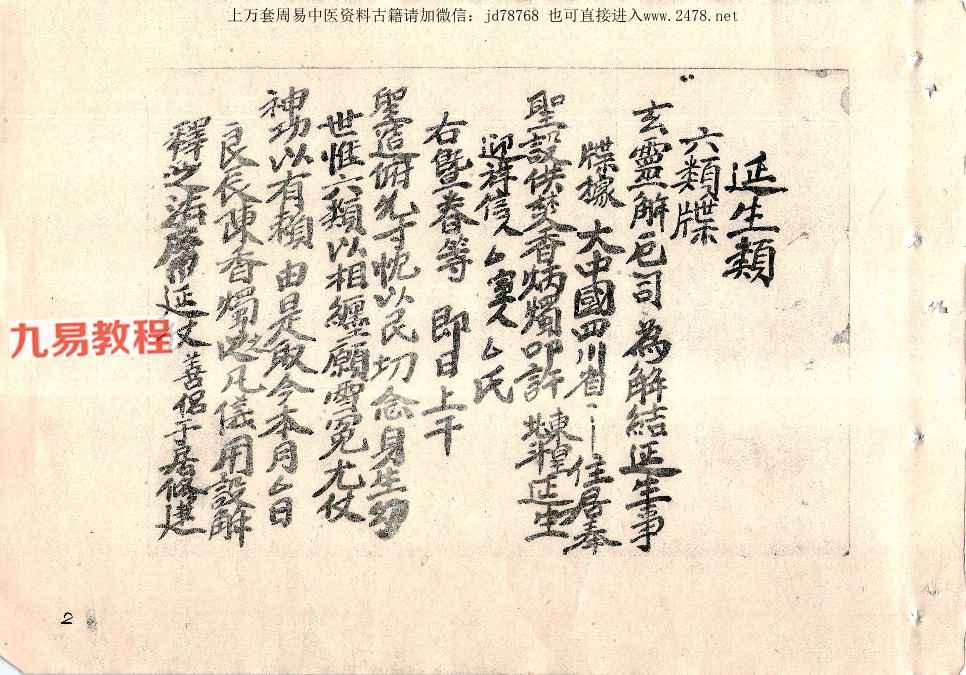 上万套周易中医资料古籍请加微信：jd78768 也可直接进入www.2478.net
延生類
六類牒
玄靈解厄司 為解結延生事
牒據 大中國四川省 住居奉
聖設供焚香炳燭叩許 東皇 延生
迎祥信人厶 室人厶氏
右暨眷等 即日上干
聖造俯允寸忱以民切念身生
世惟六類以相纏願雪冤尤仗
神功以有賴 由是取今本月厶日
良辰陳香燭 凡儀用設解
釋之法 延 善侣于居修建
九易教程
2